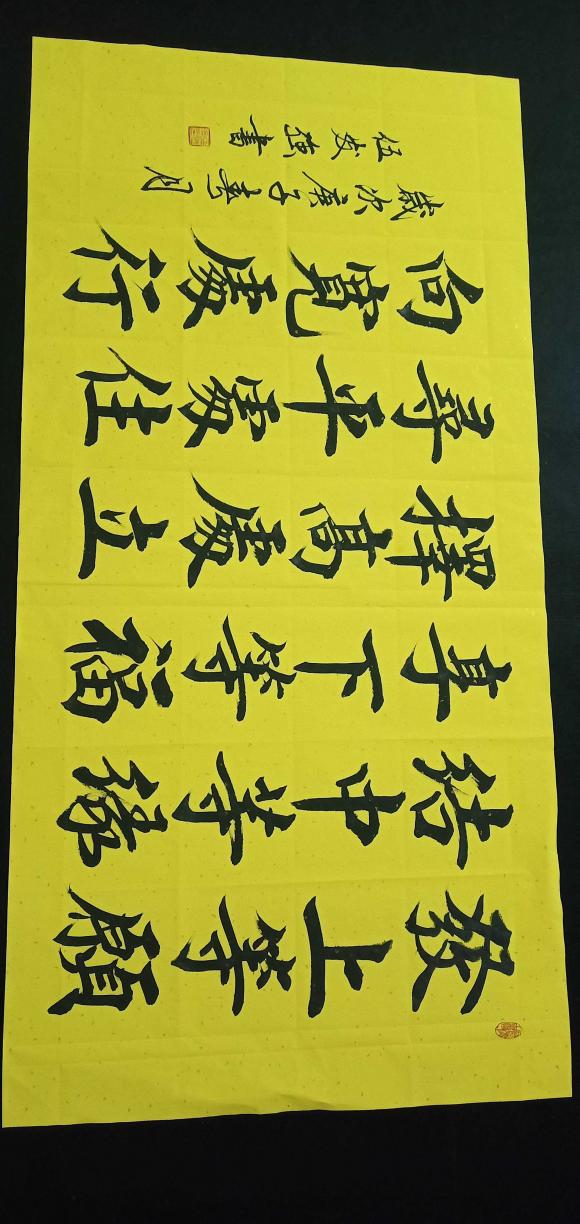 發上等願
結中等緣
享下等福
擇高處立
尋平處住
向寬處行
歲次庚子月
伍書